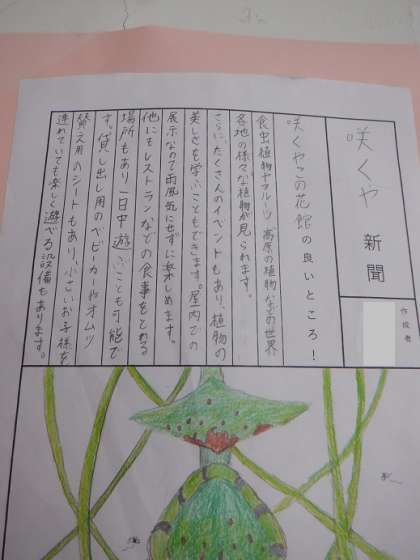 咲くや 新聞
作成者
咲くやこの花館の良いところ！
食虫植物やフルーツ、高原の植物などの世界
各地の様々な植物が見られます。
さらに、たくさんのイベントもあり、植物の
美しさを学ぶこともできます。屋内での
展示なので雨風気にせずに楽しめます。
他にもレストランなどの食事をとれる
場所もあり一日中遊ぶことも可能で
す。貸し出し用のベビーカーやオムツ
替え用のシートもあり、小さいお子様を
連れていても楽しく遊べる設備もあります。